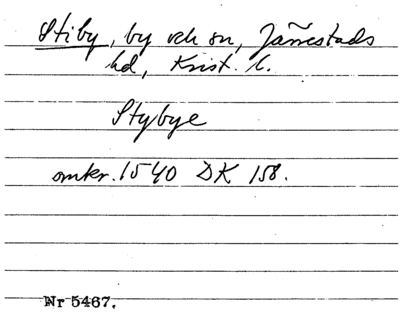 Stiby, by och sn, Järrestads
hd, Krist. l.
Stybye
omkr. 1540 DK 158.
Nr 5467.